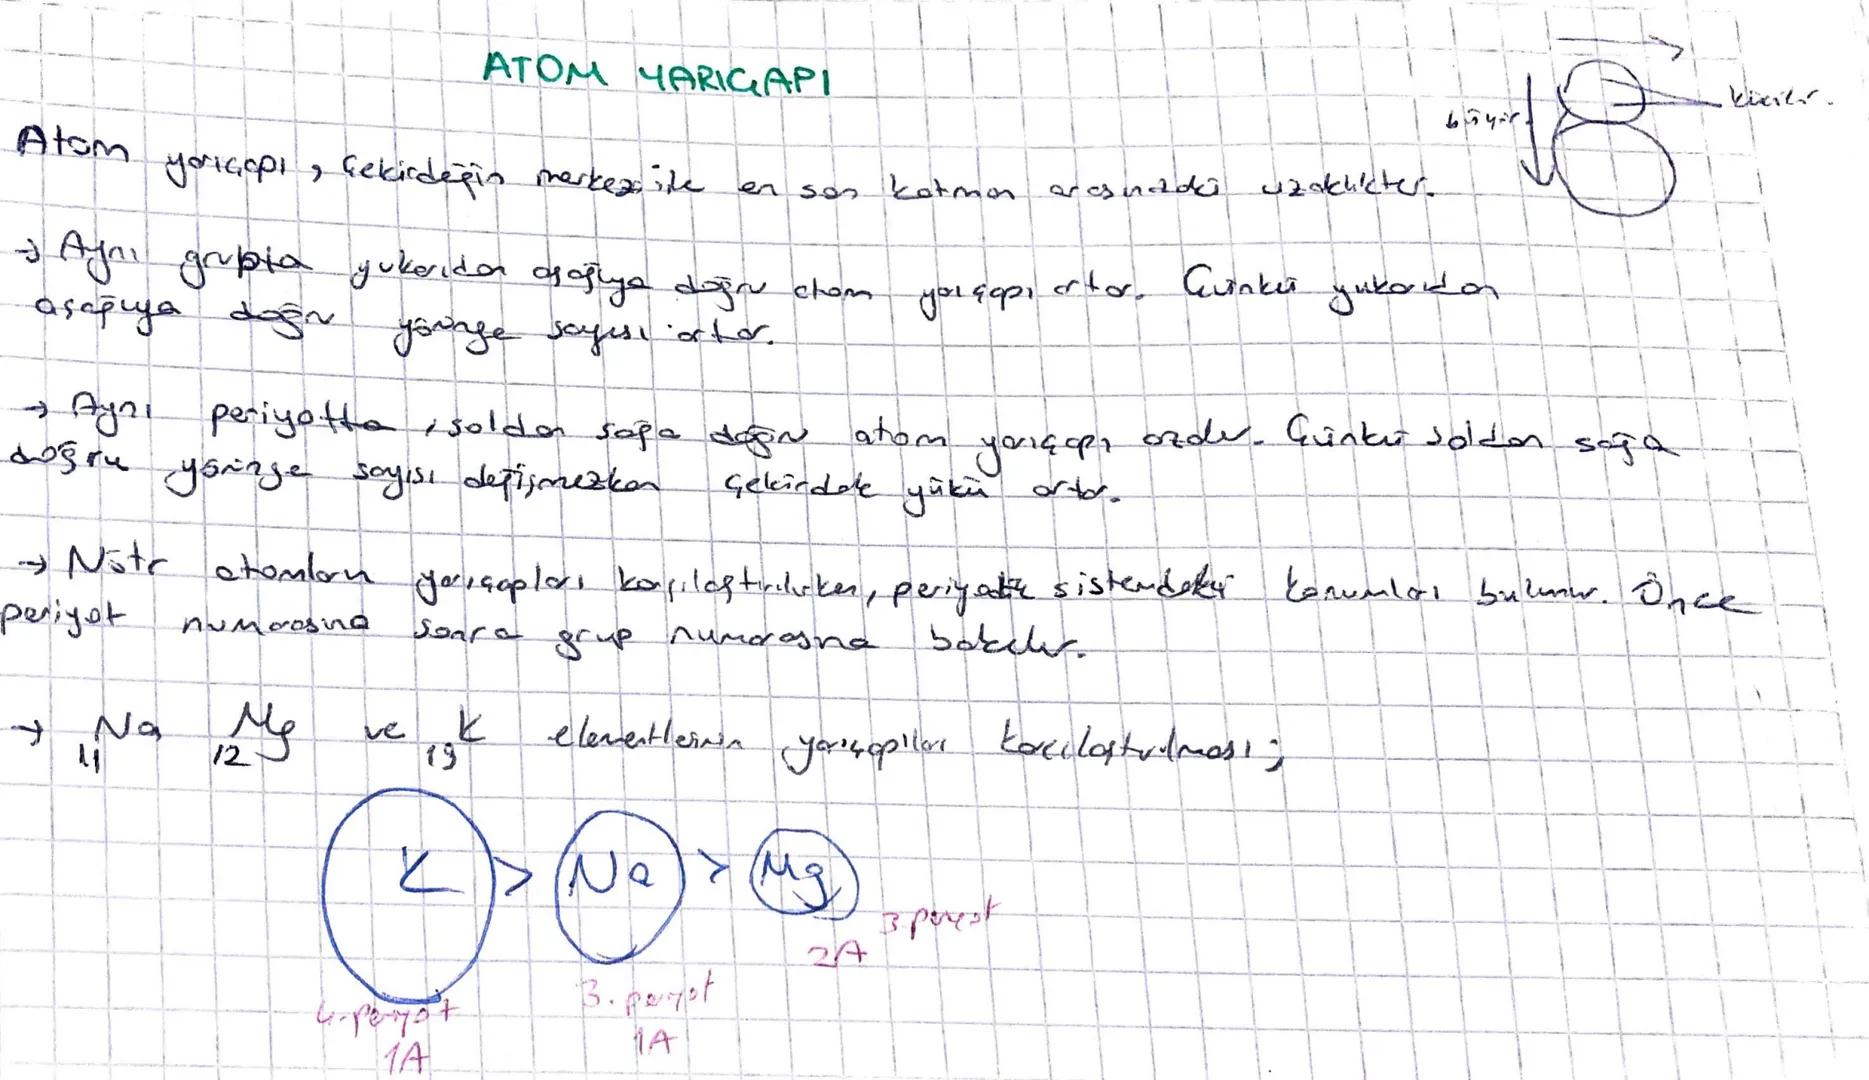 ATOM YARIÇAPI
büyür
küçülür.
Atom yarıçapı, çekirdeğin merkezi ile en son katman arasındaki uzaklıktır.
→ Aynı grupta yukarıdan aşağıya doğru atom yarıçapı artar. Çünkü yukarıdan
aşağıya doğru yörünge sayısı artar.
→ Aynı periyotta, soldan sağa doğru atom yarıçapı azalır. Çünkü soldan sağa
doğru yörünge sayısı değişmezken çekirdek yükü artar.
→ Nötr atomların yarıçapları karşılaştırılırken, periyodik sistemdeki konumları bulunur. Önce
periyot numarasına sonra grup numarasına bakılır.
→ 11Na 12Mg ve 19K elementlerinin yarıçapları karşılaştırılması;
K > Na > Mg
3. periyot
2A
3. periyot
4. periyot
1A
1A